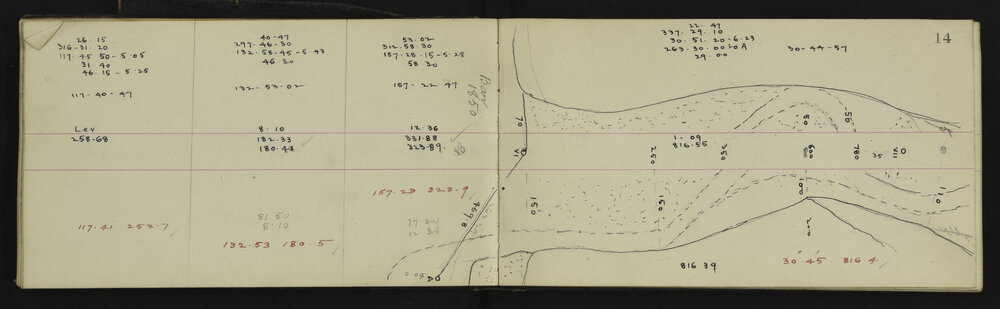 26.15
316.31.20
117.45 50-5.05
31 40
46.15-5.25
117.40-47
Lev
258.68
117.41 258.7
40-47
297.46.30
132.58.45-5.43
46.30
132-53-02
8.10
182.33
180.48
81 50
8.10
132.53 180.5
53.02
312.58.30
157.28.15-5.28
58 30
157-22 47
12.36
331.88
323.89
157.23 323.9
77 24
12 36
Barr
1850
469.8
DO
22.47
337.29.10
30.51.20-6.23
263.30.00 to A
29.00
30-44-57
14
70
VI
150
250
150
350
1.09
816.55
50
600
100
200
56
780
35
O
VIII
110
816 39
30.45 816.4